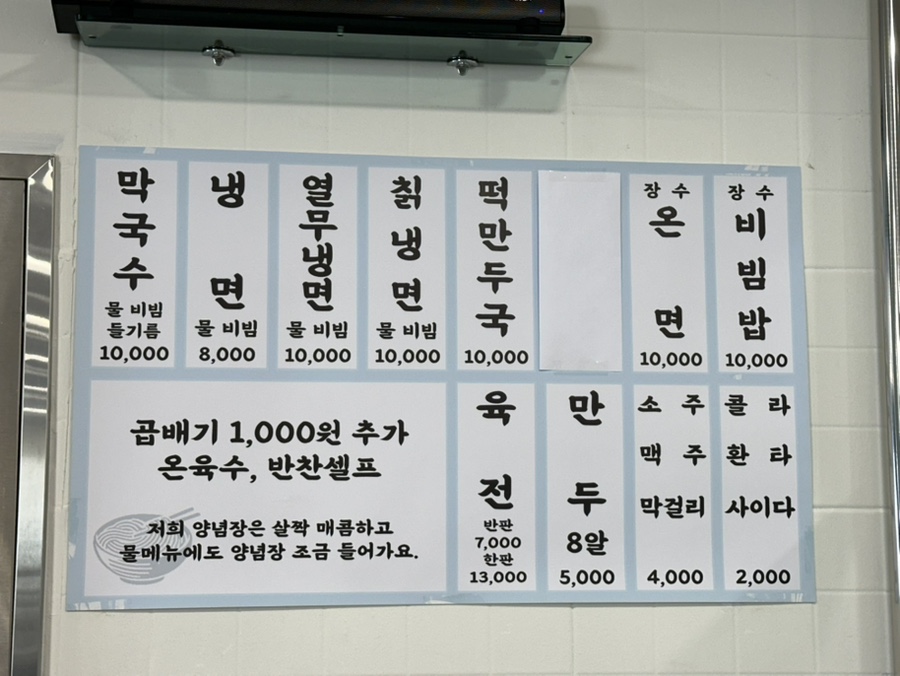 막국수
물 비빔
들기름
10,000
냉면
물 비빔
8,000
열무냉면
물 비빔
10,000
칡냉면
물 비빔
10,000
떡만두국
10,000
장수
온면
10,000
장수
비빔밥
10,000
곱배기 1,000원 추가
온육수, 반찬셀프
저희 양념장은 살짝 매콤하고
물메뉴에도 양념장 조금 들어가요.
육전
반판
7,000
한판
13,000
만두
8알
5,000
소주
맥주
막걸리
4,000
콜라
환타
사이다
2,000